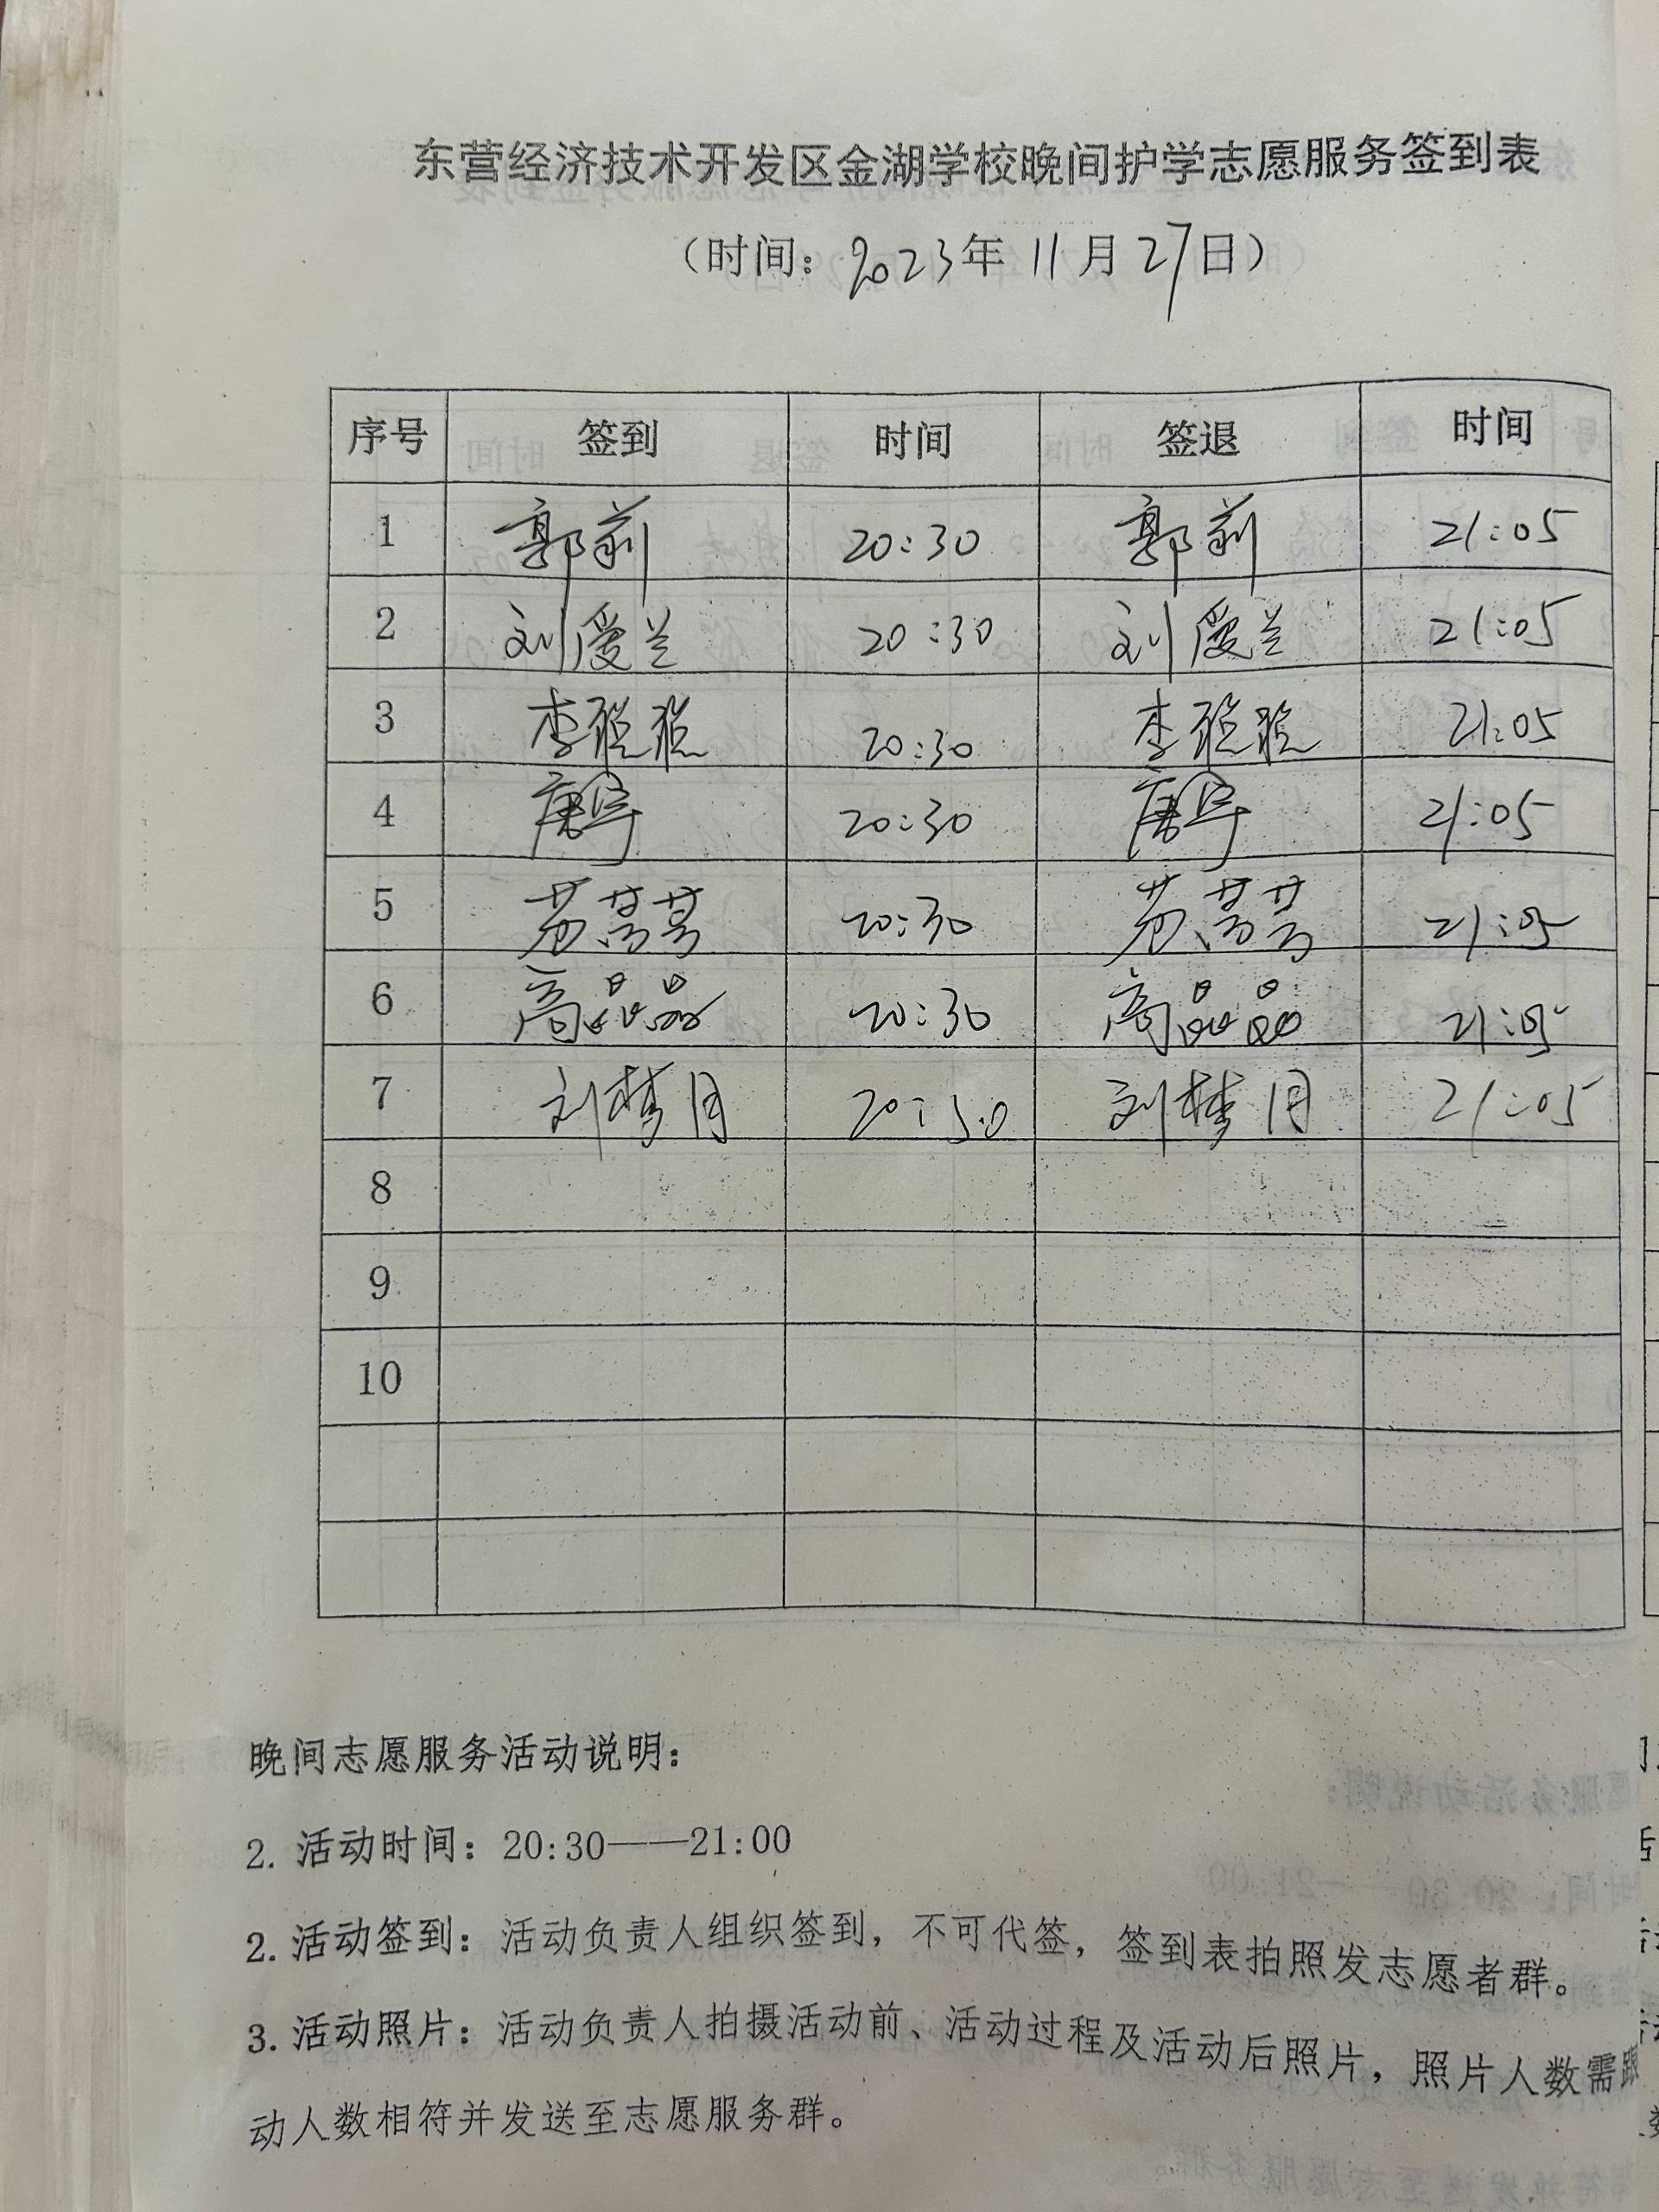 东营经济技术开发区金湖学校晚间护学志愿服务签到表
（时间：2023年11月27日）
序号 签到 时间 签退 时间
1 郭莉 20:30 郭莉 21:05
2 刘爱兰 20:30 刘爱兰 21:05
3 李 20:30 李 21:05
4 唐宇 20:30 唐宇 21:05
5 20:30 21:05
6 高晶晶 20:30 高晶晶 21:05
7 刘梦月 20:30 刘梦月 21:05
8
9
10
晚间志愿服务活动说明：
2. 活动时间：20:30——21:00
2. 活动签到：活动负责人组织签到，不可代签，签到表拍照发志愿者群。
3. 活动照片：活动负责人拍摄活动前、活动过程及活动后照片，照片人数需跟
动人数相符并发送至志愿服务群。